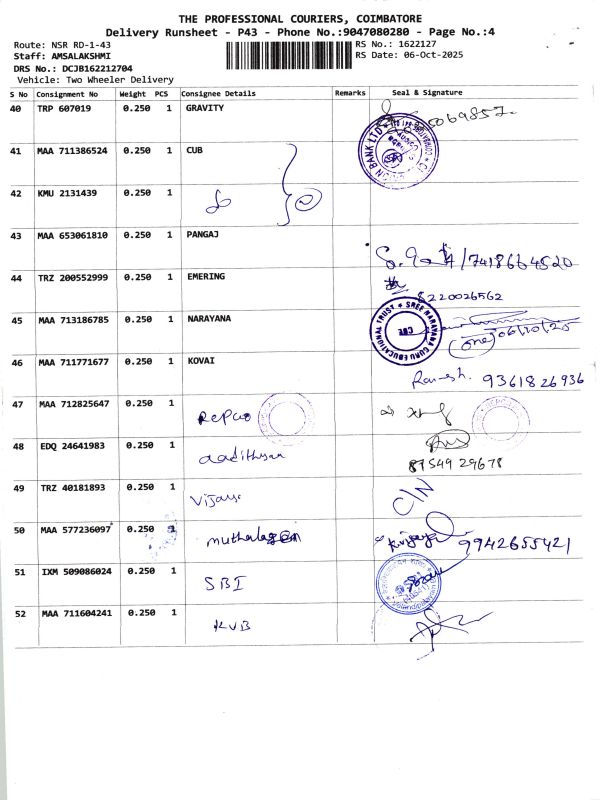 THE PROFESSIONAL COURIERS, COIMBATORE
Delivery Runsheet - P43 - Phone No.:9047080280 - Page No.:4
Route: NSR RD-1-43
RS No.: 1622127
Staff: AMSALAKSHMI
RS Date: 06-Oct-2025
DRS No.: DCJB162212704
Vehicle: Two Wheeler Delivery
S No Consignment No Weight PCS Consignee Details Remarks Seal & Signature
40 TRP 607019 0.250 1 GRAVITY
41 MAA 711386524 0.250 1 CUB
42 KMU 2131439 0.250 1
43 MAA 653061810 0.250 1 PANGAJ
7418664520
44 TRZ 200552999 0.250 1 EMERING
8220026562
45 MAA 713186785 0.250 1 NARAYANA
SREE NARAYANA GURU EDUCATIONAL TRUST
CBE
(one) 06/10/25
46 MAA 711771677 0.250 1 KOVAI
Ramesh. 9361826936
47 MAA 712825647 0.250 1 Repco
48 EDQ 24641983 0.250 1 aadithyan
87549 29678
49 TRZ 40181893 0.250 1 Vijaya
C/N
50 MAA 577236097 0.250 1
9942655421
51 IXM 509086024 0.250 1 SBI
52 MAA 711604241 0.250 1 KVB